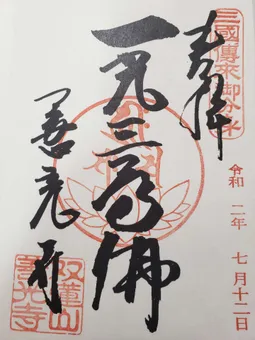 三國傳来御分身
奉拝
令和二年七月十二日
一光三尊佛
善光寺
双蓮山
善光寺